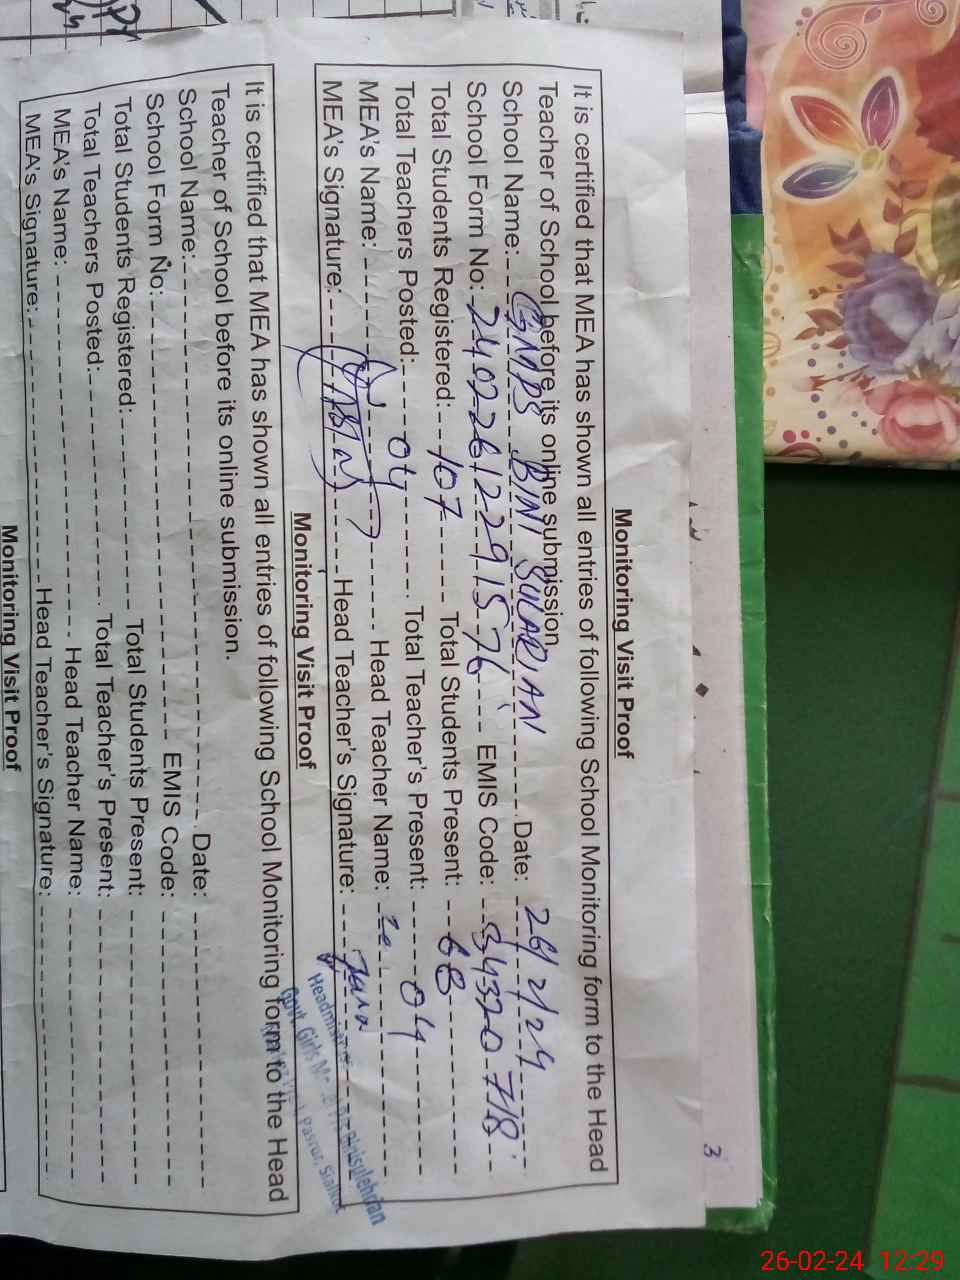 Monitoring Visit Proof
It is certified that MEA has shown all entries of following School Monitoring form to the Head
Teacher of School before its online submission.
School Name: GMPS BINI SULARIAN Date: 26/2/24
School Form No: 2402261229 1576 EMIS Code: 34320718
Total Students Registered: 107 Total Students Present: 68
Total Teachers Posted: 04 Total Teacher's Present: 04
MEA's Name: Head Teacher Name:
MEA's Signature: Head Teacher's Signature:
Govt. Girls
Pasrur, Sialkot
Monitoring Visit Proof
It is certified that MEA has shown all entries of following School Monitoring form to the Head
Teacher of School before its online submission.
School Name: Date:
School Form No: EMIS Code:
Total Students Registered: Total Students Present:
Total Teachers Posted: Total Teacher's Present:
MEA's Name: Head Teacher Name:
MEA's Signature: Head Teacher's Signature:
Monitoring Visit Proof
3
26-02-24 12:29